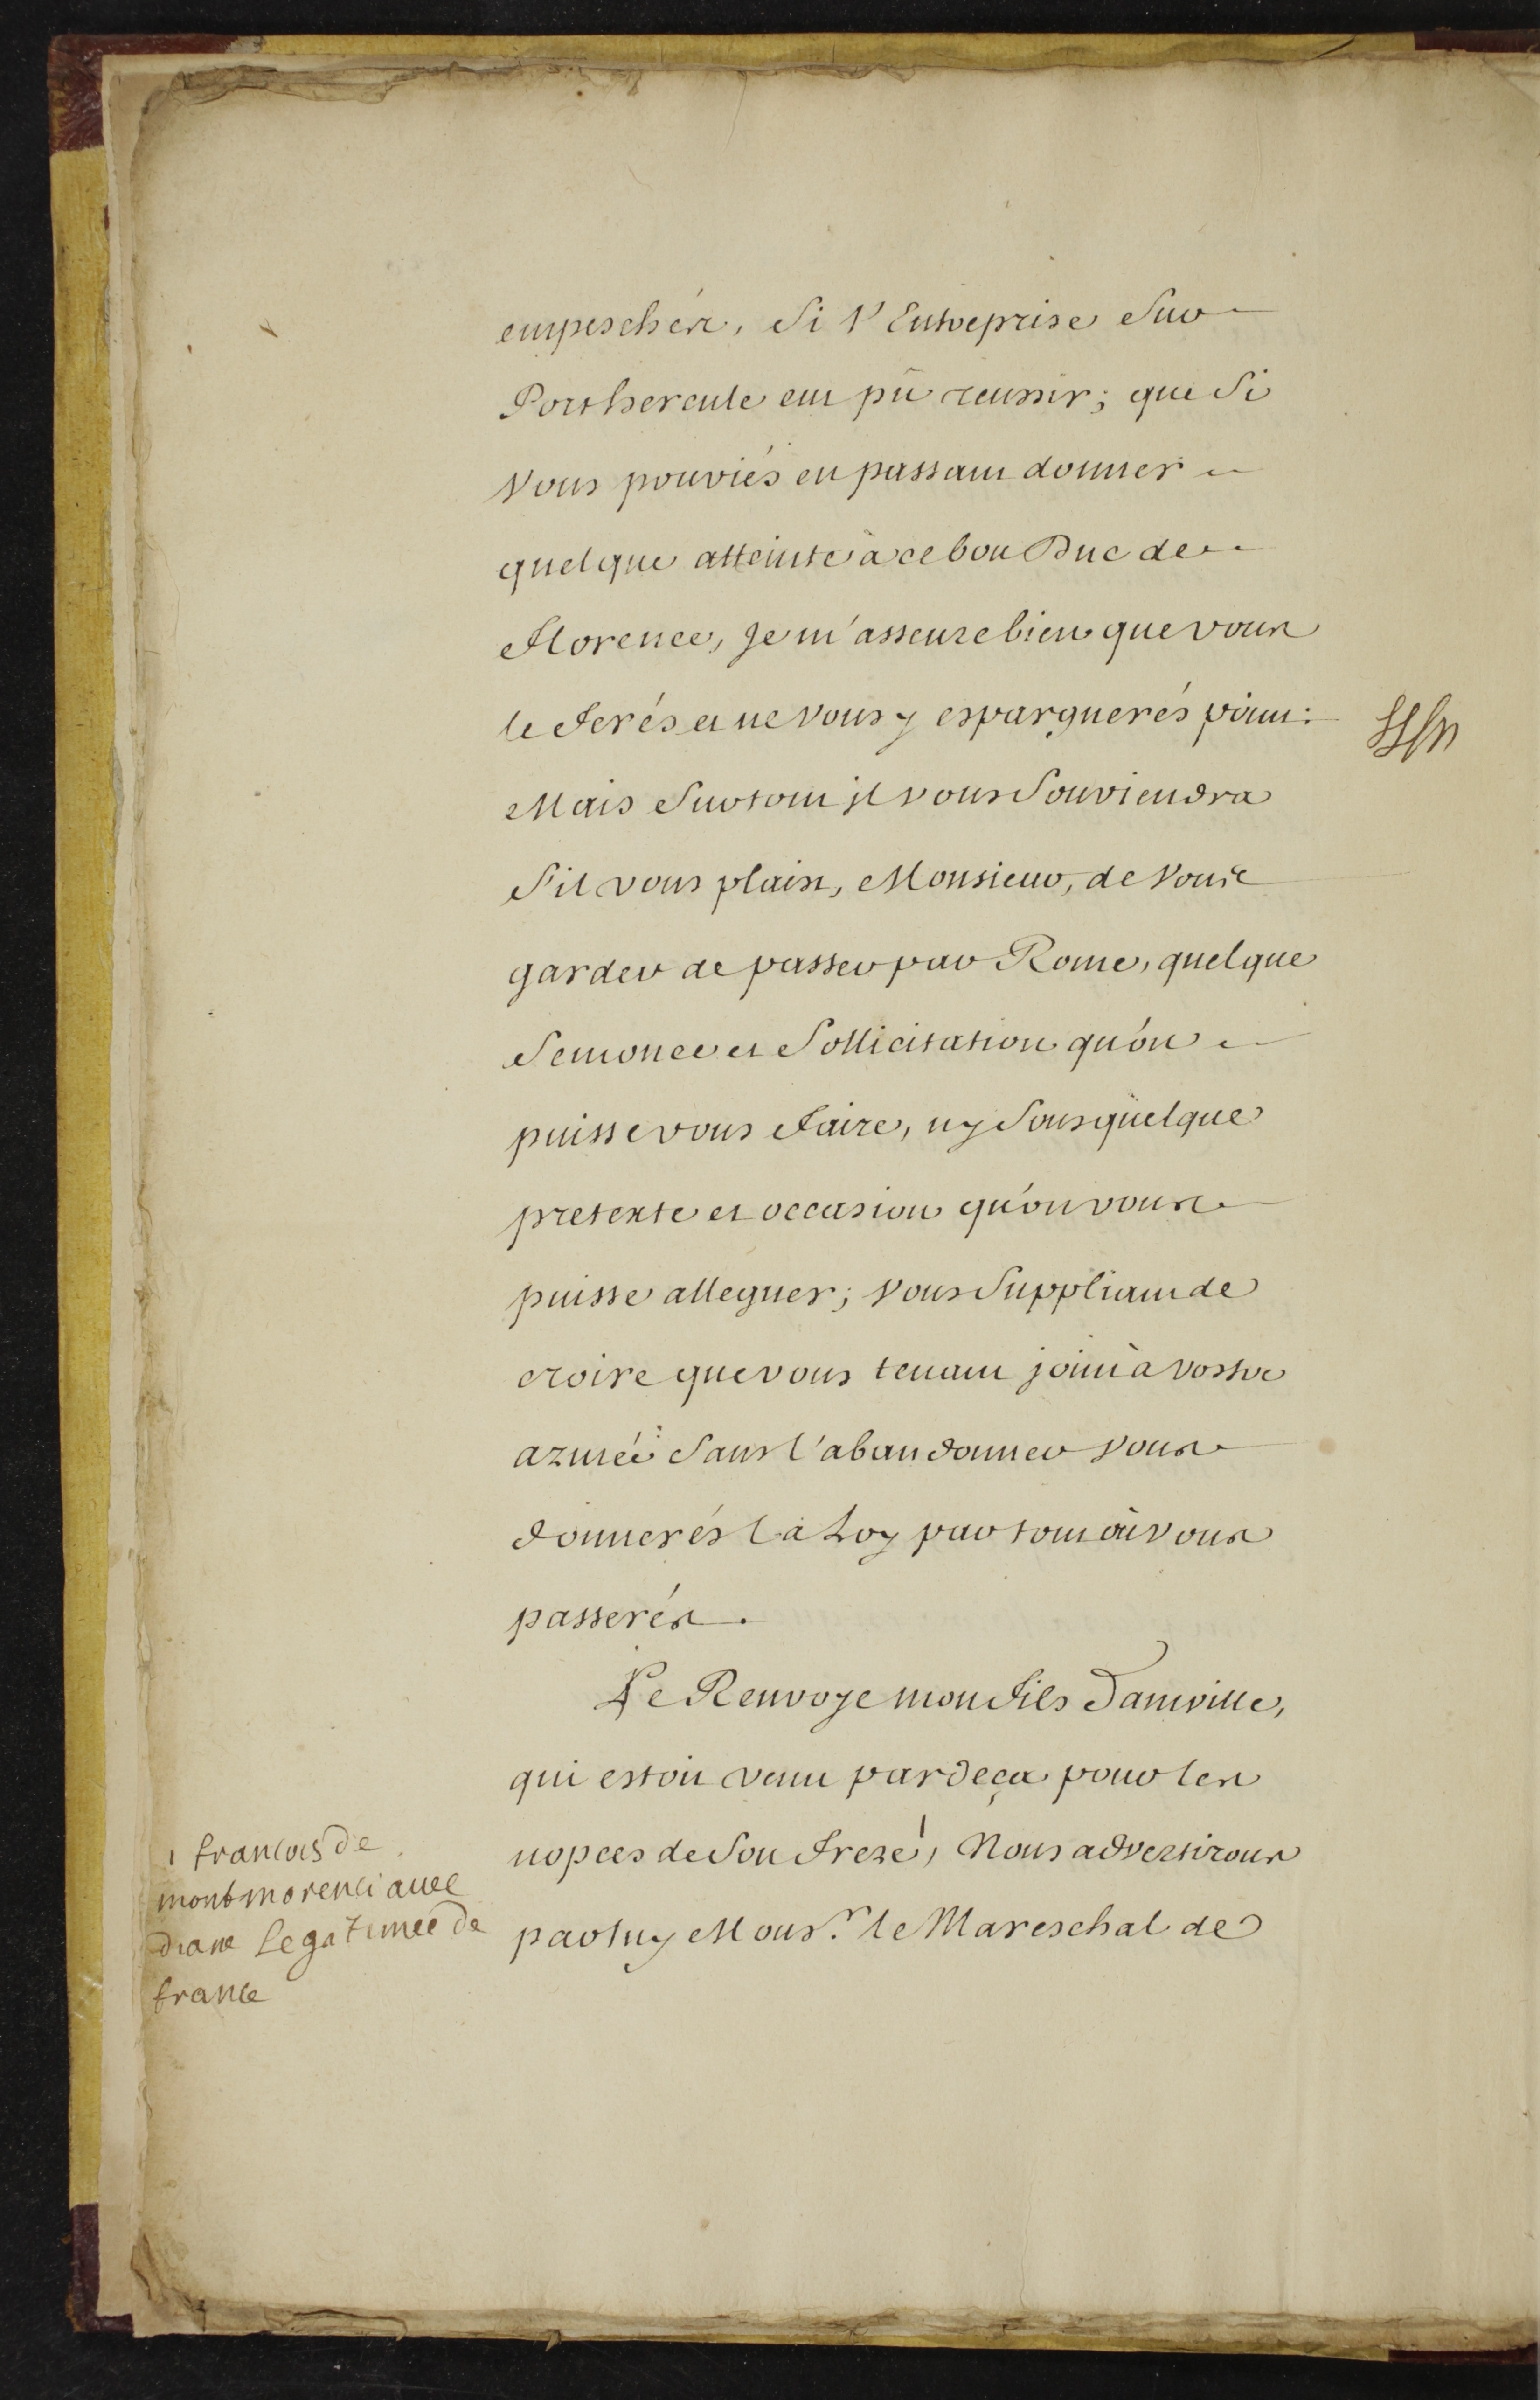 empeschér, Si l'Entreprise Sur
Porthercule eut pû reussir; que Si
Vous pouviés en passant donner
quelque atteinte à ce bon Duc de
Florence, Je m'asseure bien que vous
le Ferés et ne Vous y espargnerés point:
Mais Sur tout il vous Souviendra
S'il vous plaist, Monsieur, de Vous
garder de passer par Rome, quelque
Semonce et Sollicitation qu'on
puisse vous Faire, ny Sous quelque
pretexte et occasion qu'on vous
puisse alleguer; Vous Suppliant de
croire que vous tenant joint à vostre
armée Sans l'abandonner Vous
donnerés la Loy par tout où Vous
passerés.
Je Renvoye mon Fils Damville,
qui estoit venu pardeça pour les
nopces de Son Frere1, Nous advertirons
par luy Monsr. le Mareschal de
1 francois de
montmorenci avec
diane Legatimée de
france